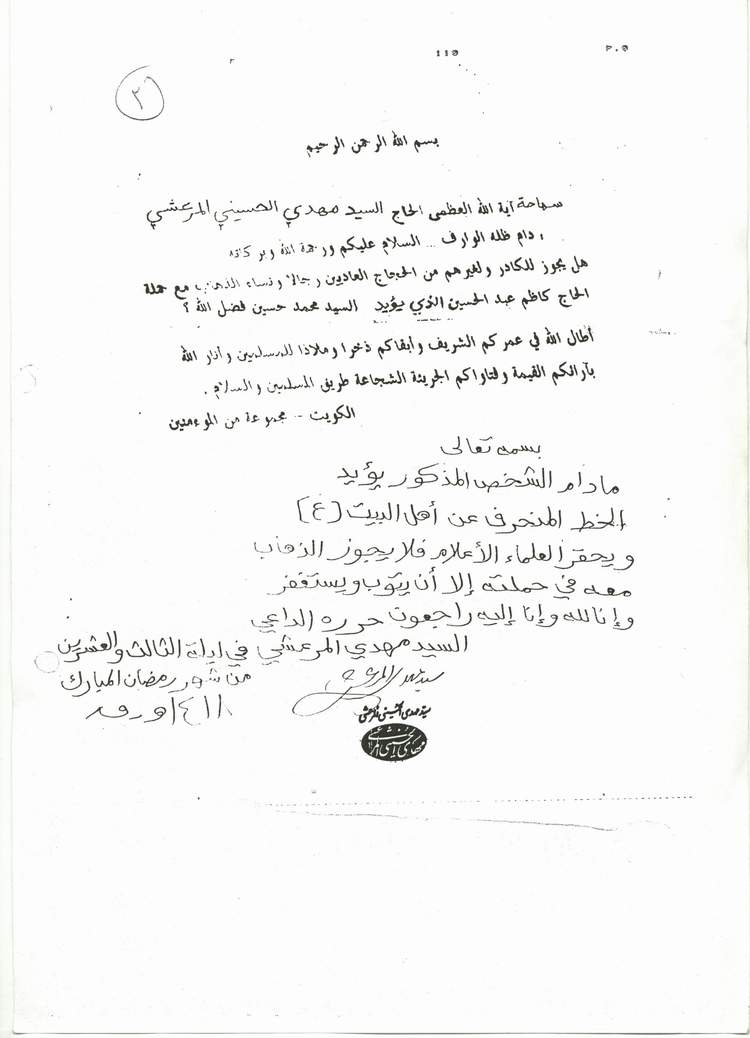 110
P.0
٣
بسم الله الرحمن الرحيم
سماحة آية الله العظمى الحاج السيد مهدي الحسيني المرعشي
، دام ظله الوارف .. السلام عليكم ورحمة الله وبركاته
هل يجوز للكادر ولغيرهم من الحجاج العاديين رجالا ونساء الذهاب مع حملة
الحاج كاظم عبد الحسين الذي يؤيد السيد محمد حسين فضل الله ؟
أطال الله في عمركم الشريف وأبقاكم ذخرا وملاذا للمسلمين وأنار الله
بآرائكم القيمة وفتاواكم الجريئة الشجاعة طريق المسلمين والسلام .
الكويت - مجموعة من المؤمنين
بسمه تعالى
مادام الشخص المذكور يؤيد
الخط المنحرف عن أهل البيت (ع)
ويحقر العلماء الأعلام فلا يجوز الذهاب
معه في حملته إلا أن يتوب ويستغفر
وإنا لله وإنا إليه راجعون حرره الداعي
السيد مهدي المرعشي في ليلة الثالث والعشرين
من شهر رمضان المبارك
١٤١٨
سيد مهدي الحسيني المرعشي